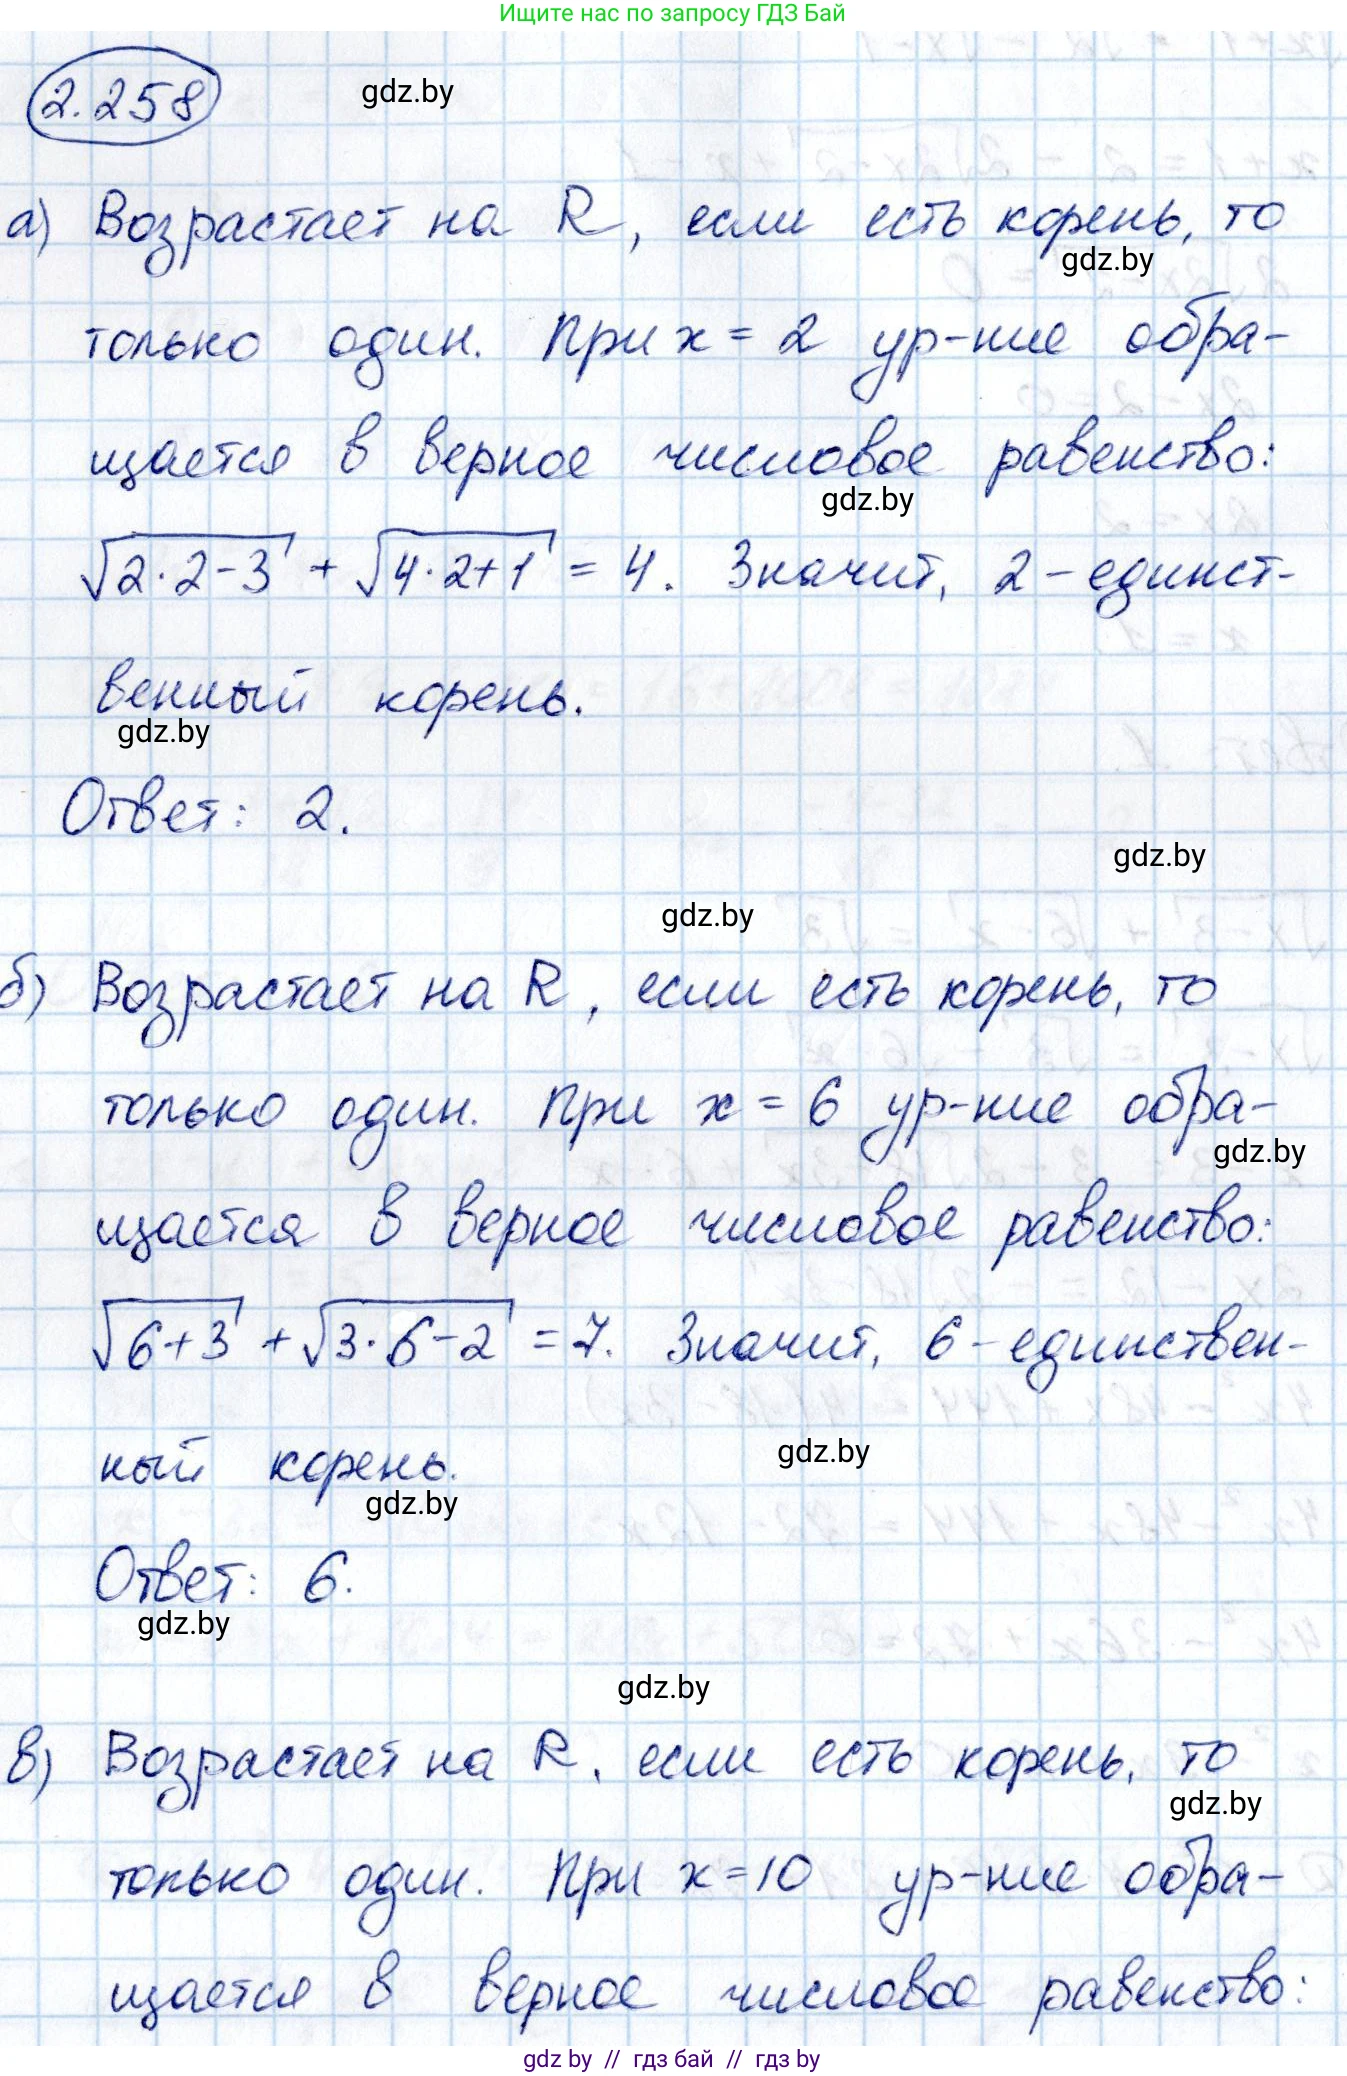 Ищите нас по запросу ГДЗ Бай
2.258
gdz.by
а) Возрастает на R, если есть корень, то
gdz.by
только один. При x = 2 ур-ние обра-
щается в верное числовое равенство:
gdz.by
√(2·2-3) + √(4·2+1) = 4. Значит, 2 - единст-
венный корень.
gdz.by
Ответ: 2.
gdz.by
gdz.by
б) Возрастает на R, если есть корень, то
только один. При x = 6 ур-ние обра-
gdz.by
щается в верное числовое равенство:
√(6+3) + √(3·6-2) = 7. Значит, 6 - единствен-
ный корень.
gdz.by
gdz.by
Ответ: 6.
gdz.by
gdz.by
в) Возрастает на R, если есть корень, то
gdz.by
только один. При x=10 ур-ние обра-
щается в верное числовое равенство:
gdz by // гдз бай // гдз by